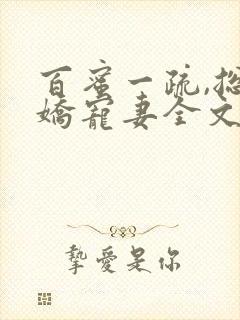 百蜜一疏,总
娇宠妻全文
挚爱是你